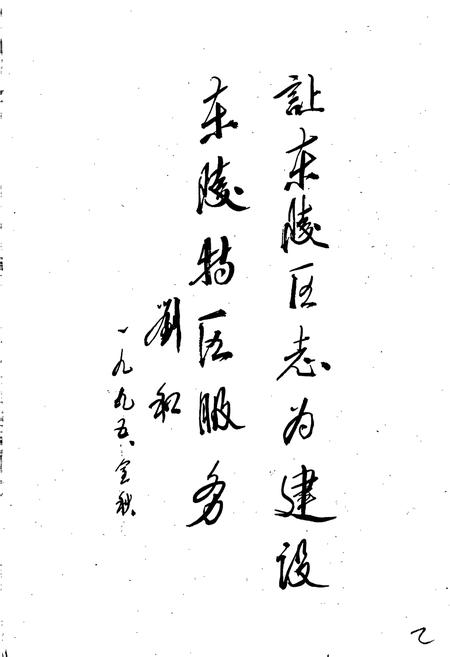 让东陵区志为建设
东陵特区服务
劉和
一九九五、金秋